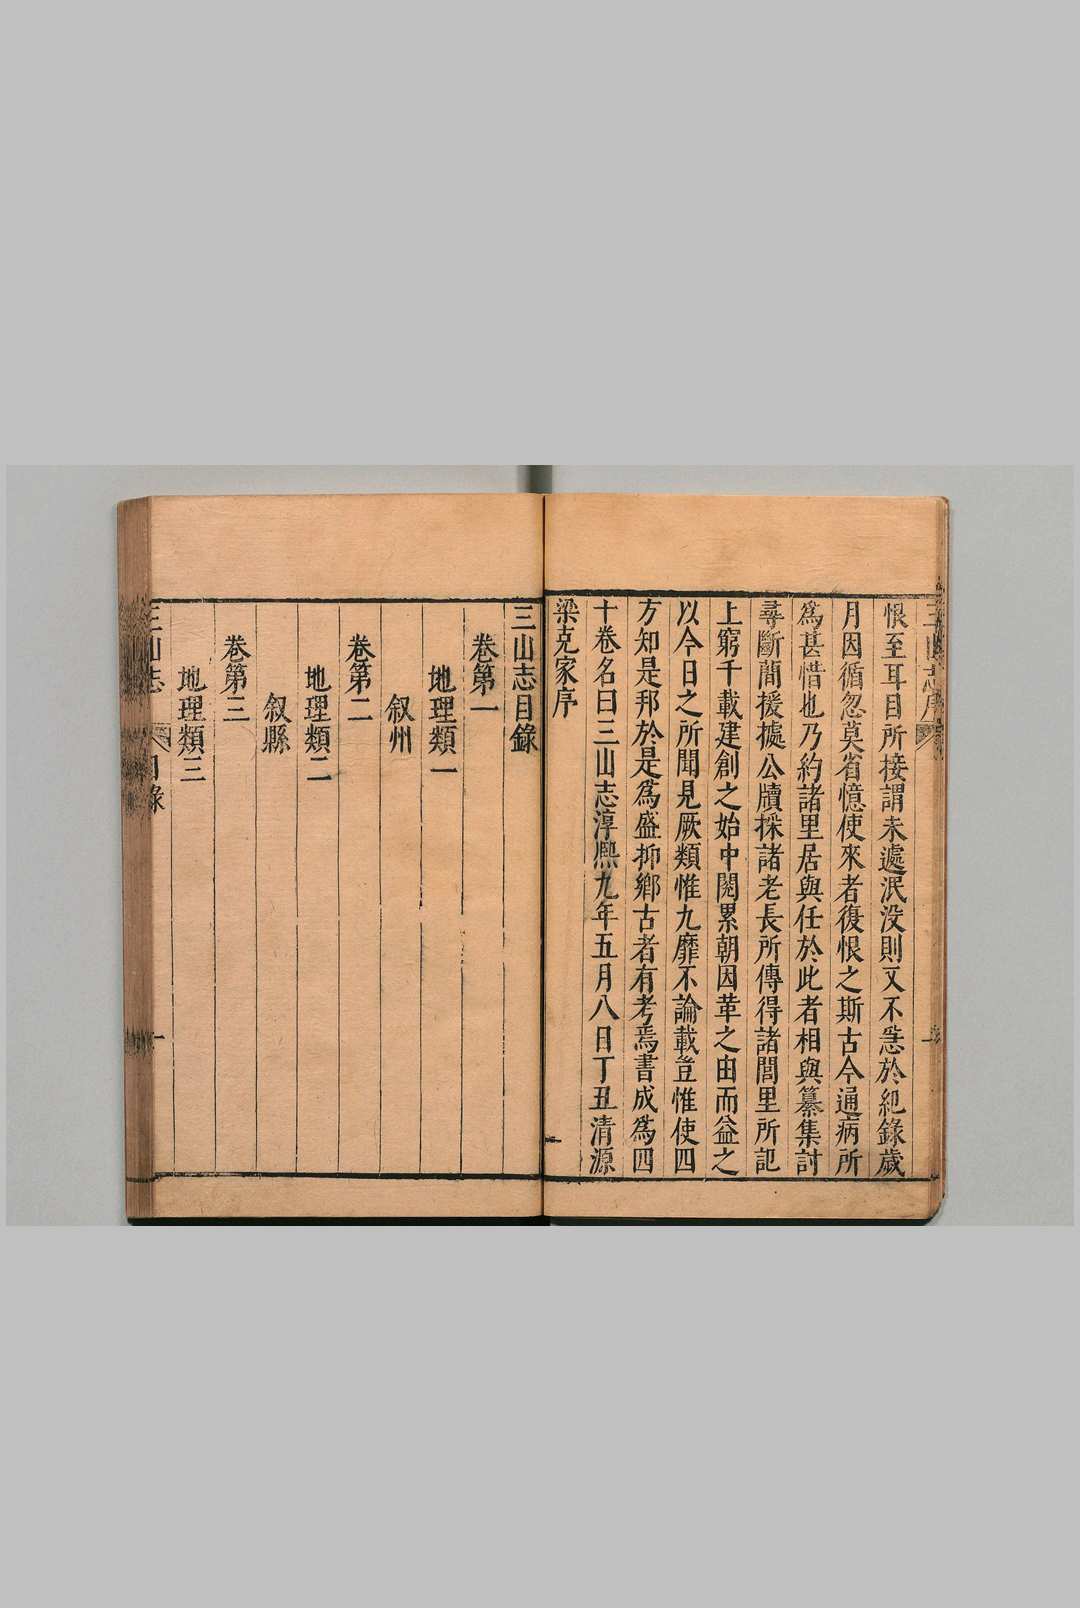 三山志序
恨至耳目所接謂未遽泯没則又不急於紀錄歲
月因循忽莫省憶使來者復恨之斯古今通病所
爲甚惜也乃約諸里居與任於此者相與纂集討
尋斷簡援據公牘採諸老長所傳得諸閭里所記
上窮千載建創之始中閱累朝因革之由而益之
以今日之所聞見厥類惟九靡不論載豈惟使四
方知是邦於是爲盛抑鄉古者有考焉書成爲四
十卷名曰三山志淳熈九年五月八日丁丑清源
梁克家序
三山志目錄
卷第一
地理類一
叙州
卷第二
地理類二
叙縣
卷第三
地理類三
三山志
目錄
一